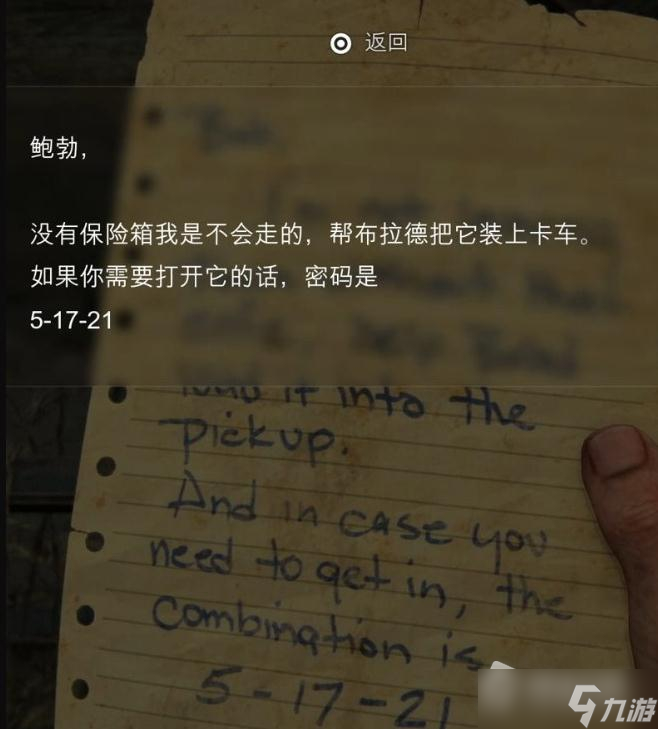 返回
鲍勃,
没有保险箱我是不会走的，帮布拉德把它装上卡车。
如果你需要打开它的话，密码是
5-17-21
load it into the
pickup.
And in case you
need to get in, the
combination is
5-17-21
九游